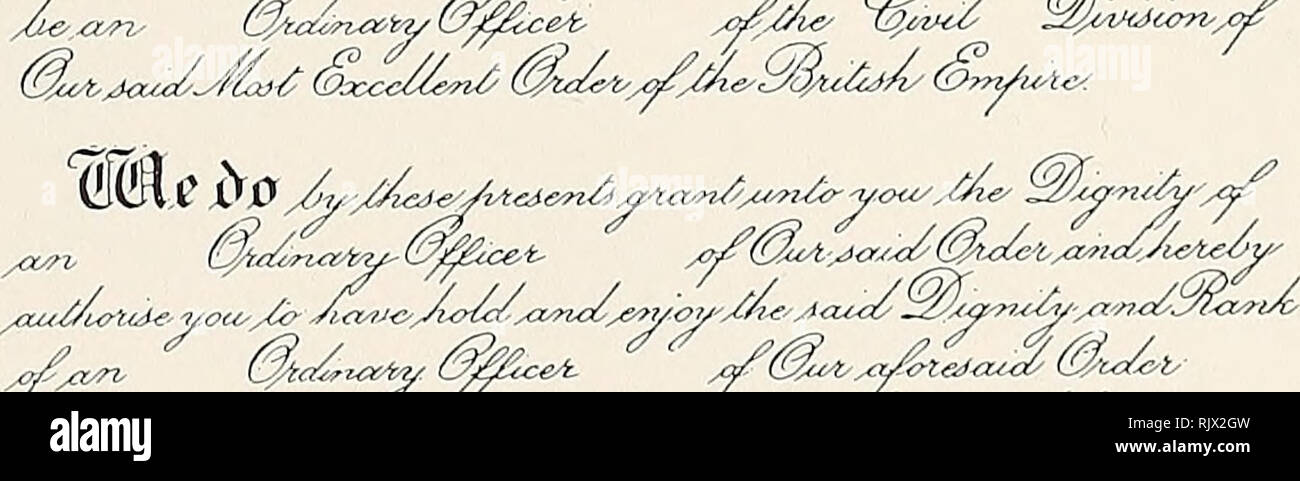 be an Ordinary Officer of the Civil Division of
Our said Most Excellent Order of the British Empire.
We do by these presents grant unto you the Dignity of
an Ordinary Officer of Our said Order and hereby
authorise you to have hold and enjoy the said Dignity and Rank
of an Ordinary Officer of Our aforesaid Order
alamy
Image ID: RJX2GW
www.alamy.com